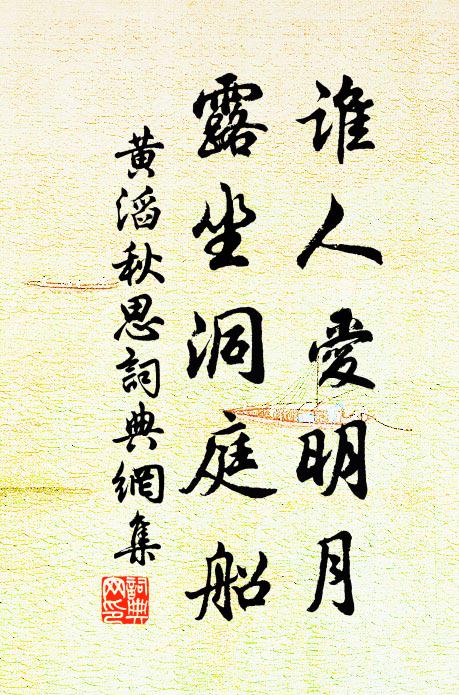 誰人愛明月
露坐洞庭船
黃滔秋思詞典網集
詞典網印